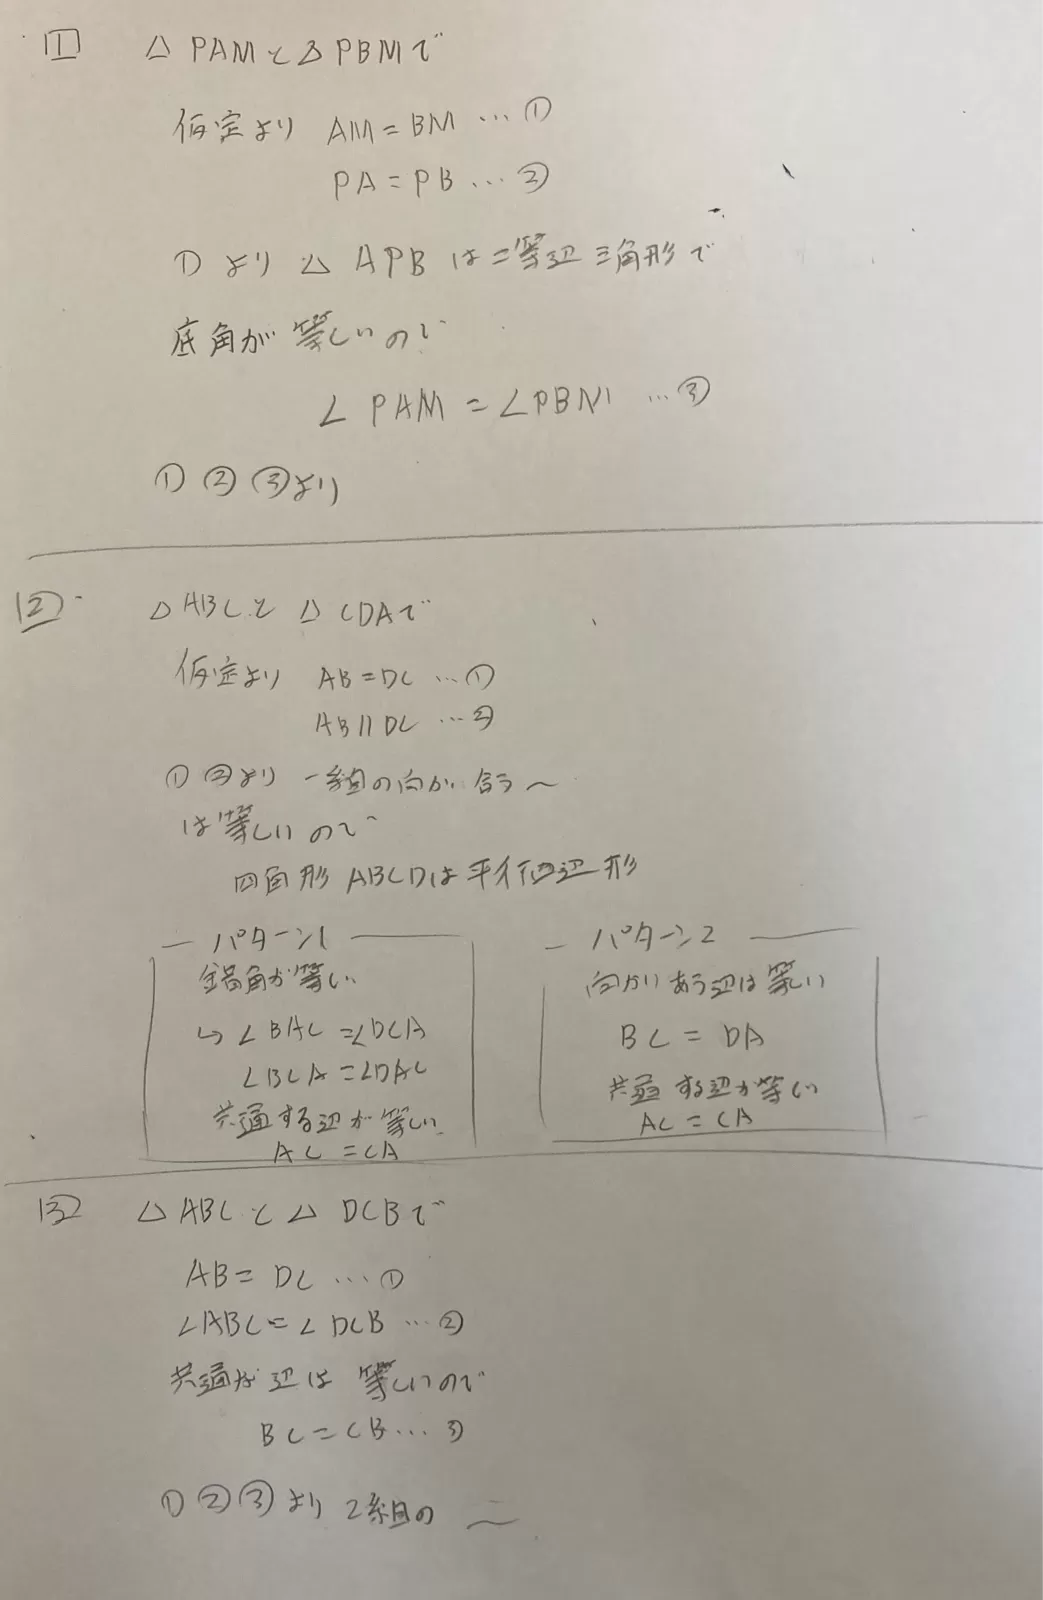 1 △PAMと△PBMで
仮定より AM=BM…①
PA=PB…②
①より △APBは二等辺三角形で
底角が等しいので
∠PAM=∠PBM…③
①②③より
2 △ABCと△CDAで
仮定より AB=DC…①
AB//DC…②
①②より 一組の向かい合う〜
は等しいので
四角形ABCDは平行四辺形
パターン1
錯角が等しい
↳∠BAC=∠DCA
∠BCA=∠DAC
共通する辺が等しい
AC=CA
パターン2
向かいあう辺は等しい
BC=DA
共通する辺が等しい
AC=CA
3 △ABCと△DCBで
AB=DC…①
∠ABC=∠DCB…②
共通な辺は等しいので
BC=CB…③
①②③より 2組の〜